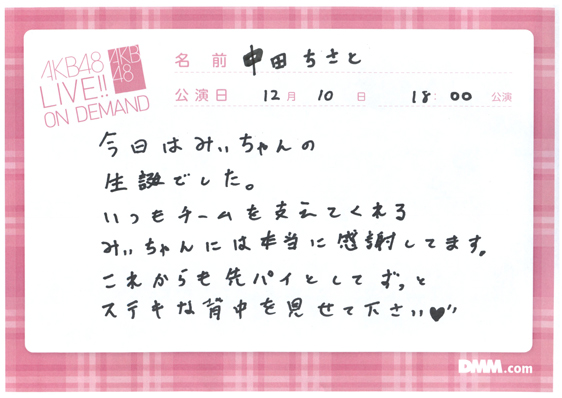 AKB48
LIVE!!
ON DEMAND
AKB
48
名前 中田ちさと
公演日 12月10日 18:00 公演
今日はみぃちゃんの
生誕でした。
いつもチームを支えてくれる
みぃちゃんには本当に感謝してます。
これからも先パイとしてずっと
ステキな背中を見せて下さい♥"
DMM.com